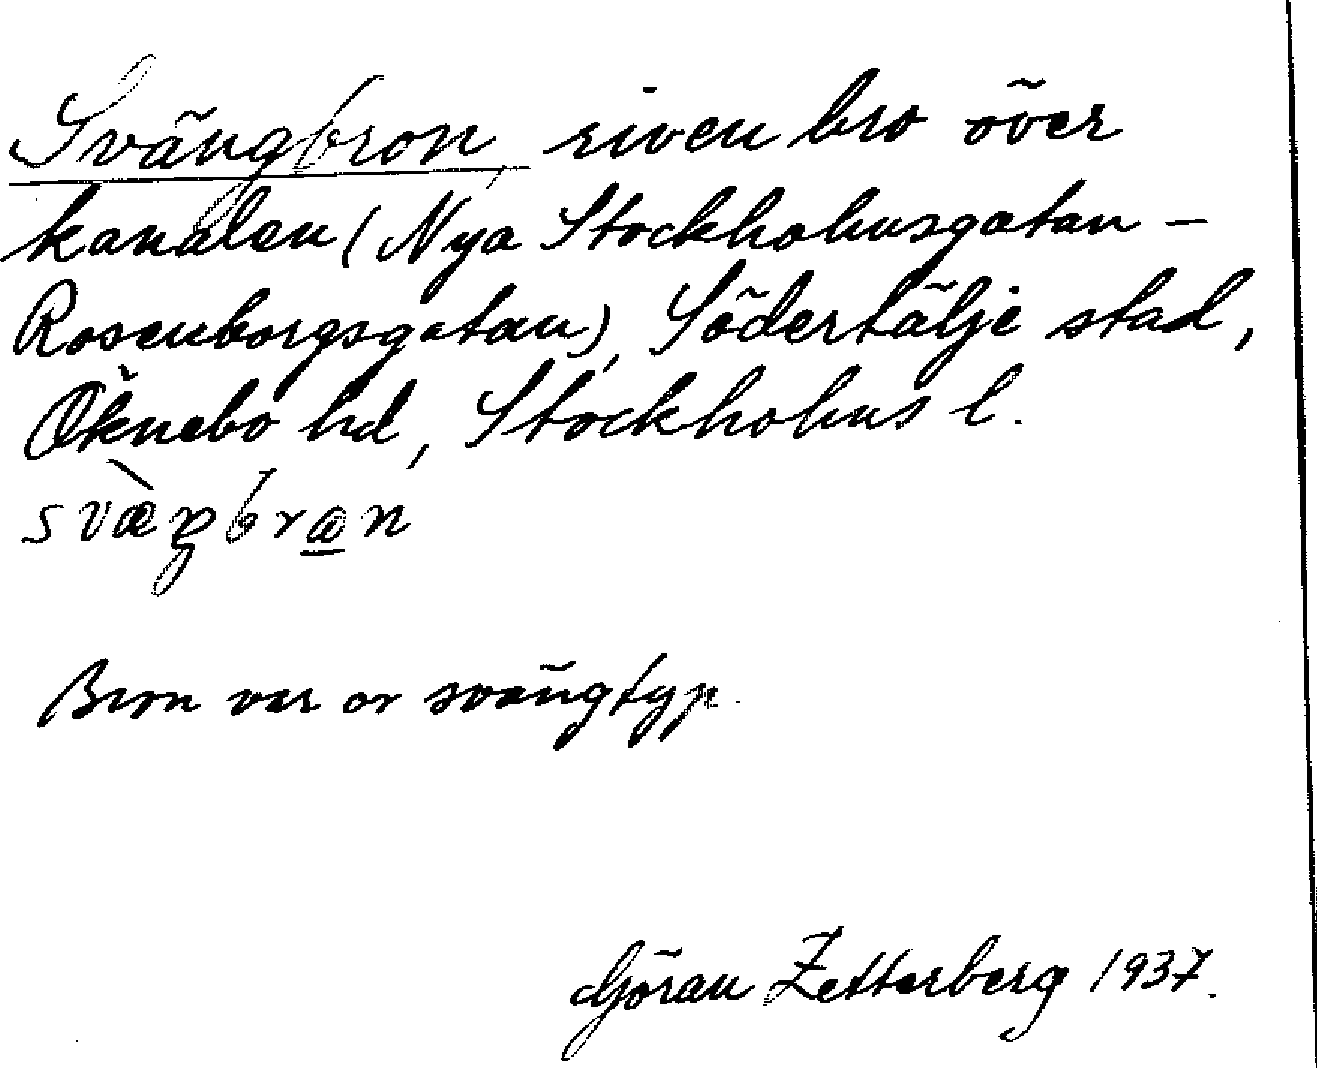 Svängbron, riven bro över
kanalen (Nya Stockholmsgatan –
Rosenborgsgatan), Södertälje stad,
Öknebo hd, Stockholms l.
svæ̀ŋbrɷn
Bron var av svängtyp.
Göran Zetterberg 1937.